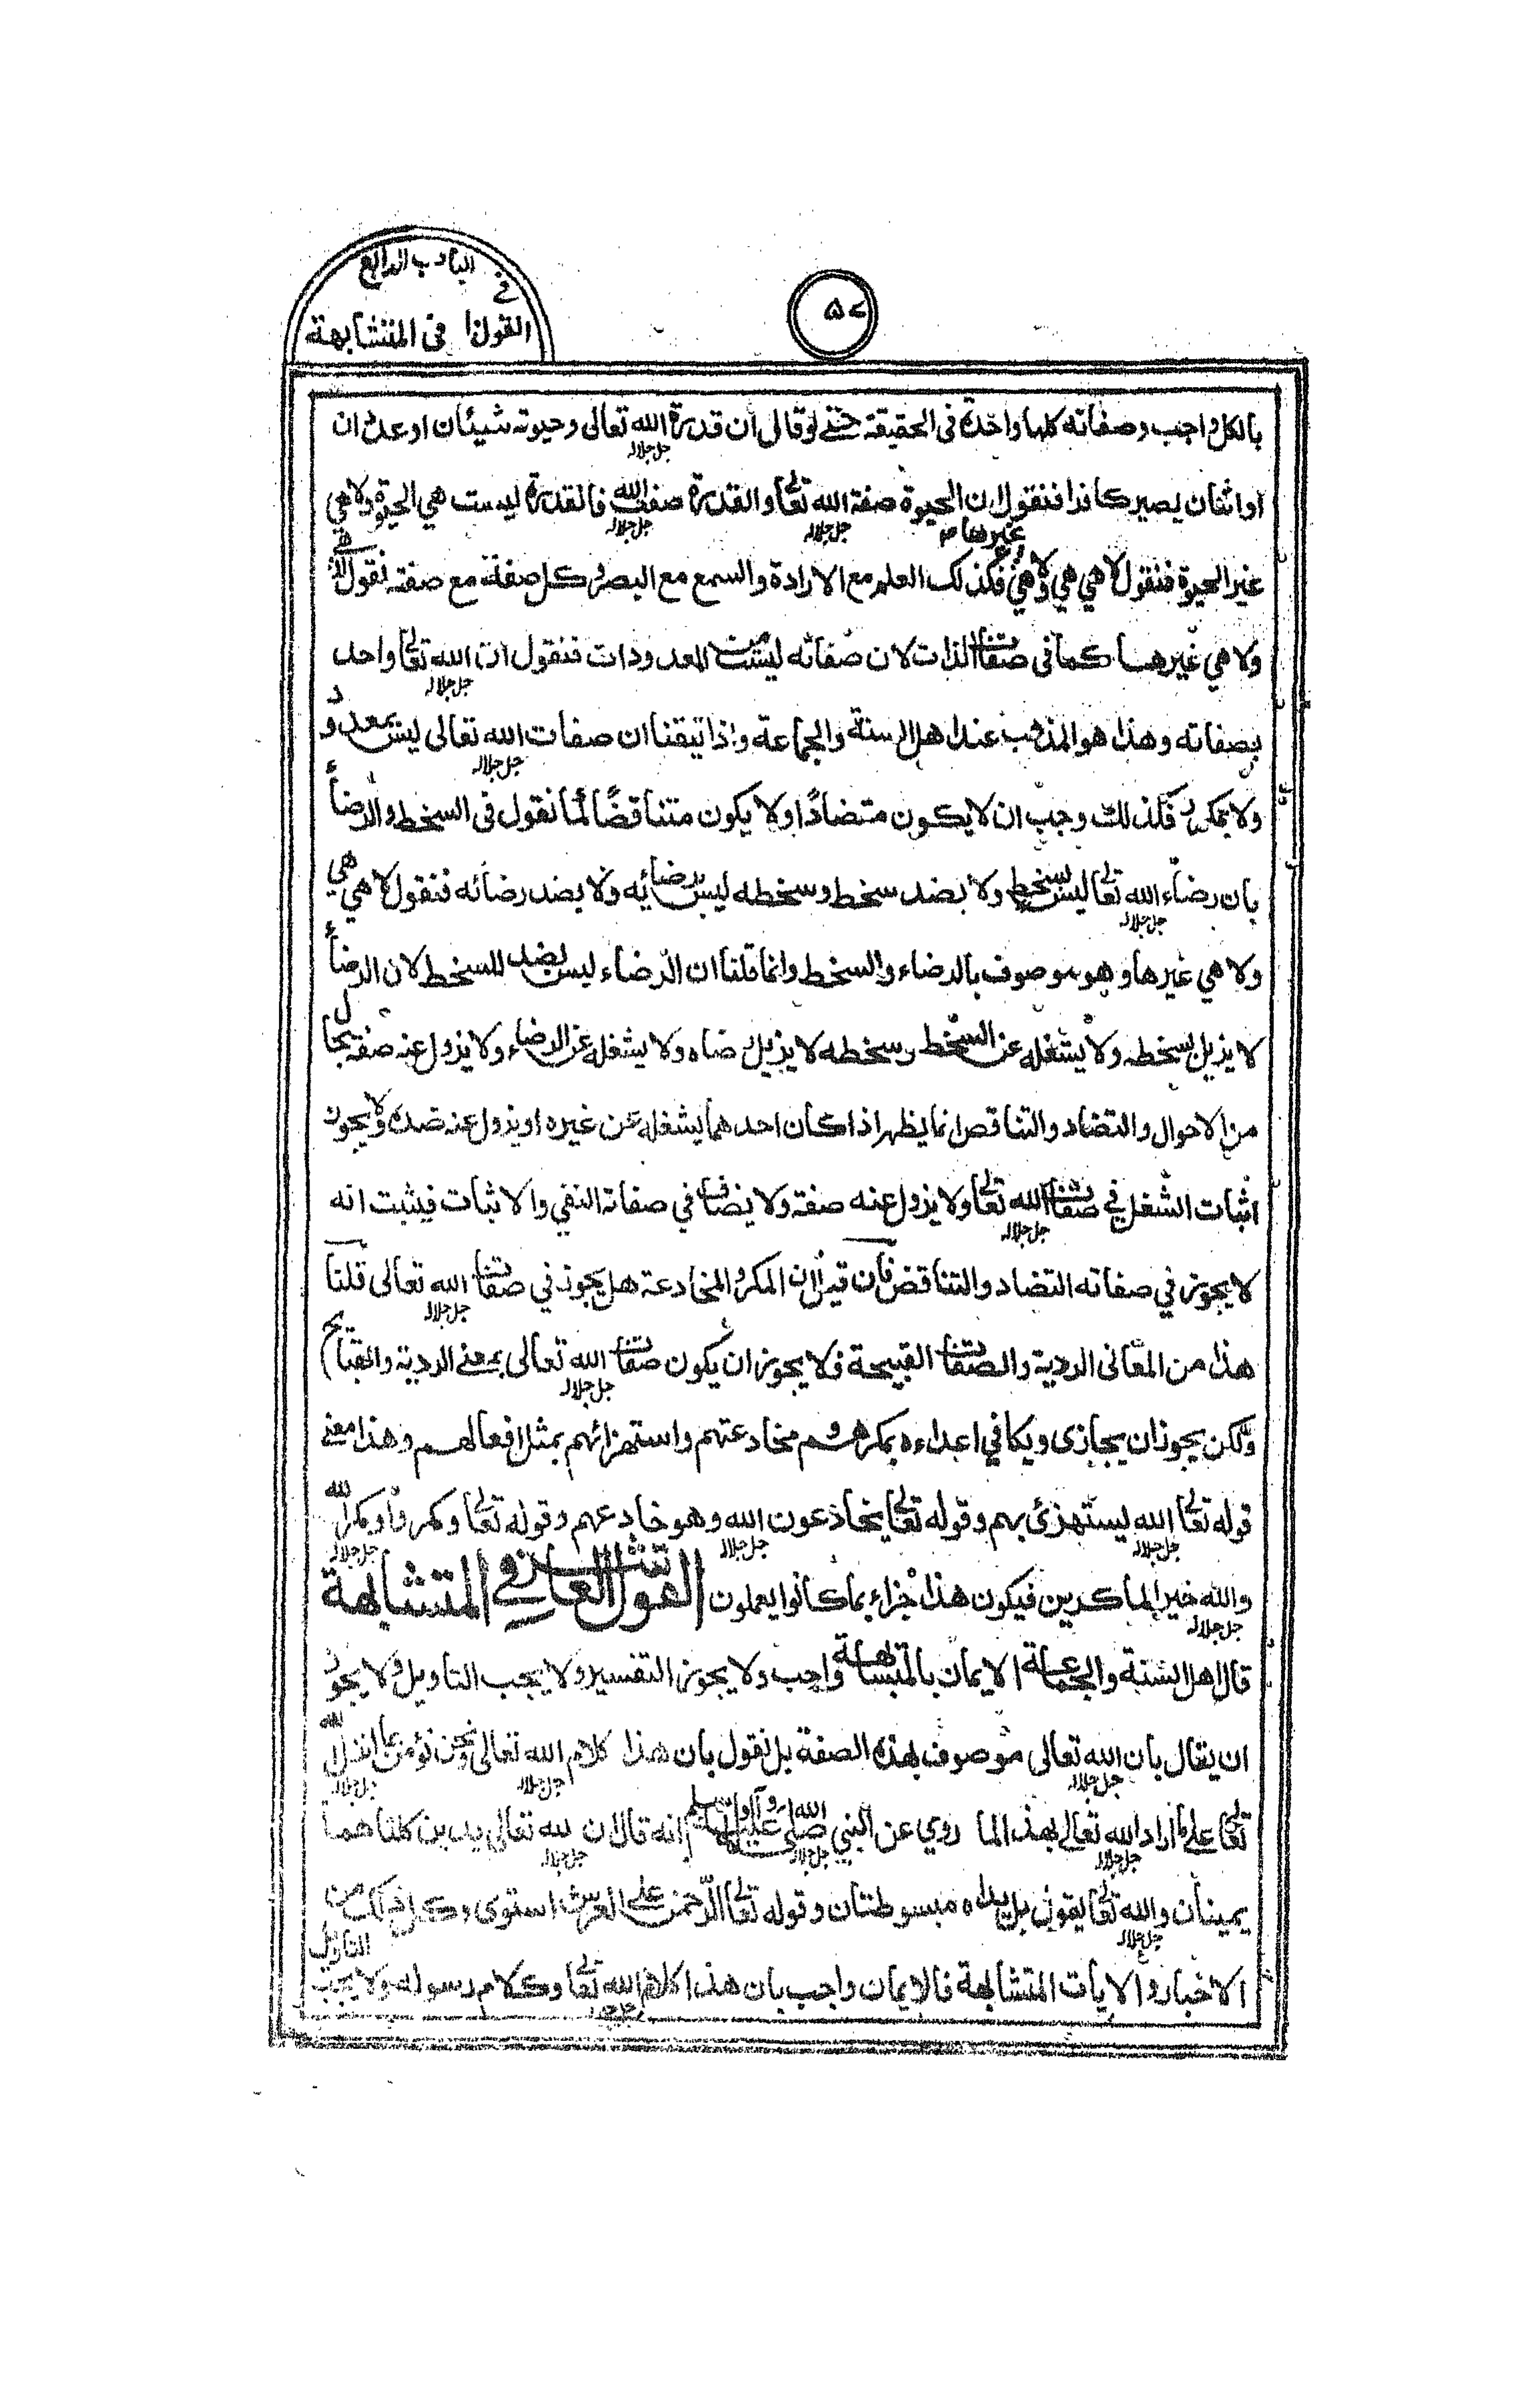 الباب الرابع
في
القول في المتشابهة
٥٧
بالكل واجب وصفاته كلها واحدة فى الحقيقة حتى لو قال ان قدرة الله تعالى وحيوته شيئان او عدل ان
جل جلاله
او اثنان يصير كافرا فنقول ان الحيوة صفة الله تعالى والقدرة صفت الله فالقدرة ليست هي الحيوة ولا هي
جل جلاله جل جلاله
غير الحيوة فنقول لا هي هي ولا هي غيرها فكذلك العلم مع الارادة والسمع مع البصر وكل صفة مع صفته نقول لا هي
ولا هي غيرها كما فى صفات الذات لان صفاته ليست المعدودات فنقول ان الله تعالى واحد
جل جلاله
بصفاته وهذا هو المذهب عند اهل السنة والجماعة واذا تيقنا ان صفات الله تعالى ليس بمعدود
جل جلاله
ولا يتمكن فكذلك وجب ان لا يكون متضادًا ولا يكون متناقضًا لما نقول فى السخط والرضاء
بان رضاء الله تعالى ليس بسخط ولا بضد سخط وسخطه ليس برضائه ولا بضد رضائه فنقول لا هي هي
جل جلاله
ولا هي غيرها وهو موصوف بالرضاء والسخط وانما قلنا ان الرضاء ليس بضد للسخط لان الرضاء
لا يزيل بسخطه ولا يشغله عن السخط وسخطه لا يزيل رضاه ولا يشغله عن الرضاء ولا يزول عنه صفة بحال
من الاحوال والتضاد والتناقص انما يظهر اذا كان احدهما يشغله عن غيره او يزول عنه ضده ولا يجوز
اثبات الشغل في صفات الله تعالى ولا يزول عنه صفة ولا يضاف في صفاته النفي والاثبات فيثبت انه
جل جلاله
لا يجوز في صفاته التضاد والتناقض فان قيل ان المكر والمخادعة هل يجوز في صفات الله تعالى قلنا
جل جلاله
هذا من المعانى الردية والصفات القبيحة فلا يجوز ان يكون صفات الله تعالى بمعنى الردية والقبائح
جل جلاله
ولكن يجوز ان يجازى ويكافي اعداءه بمكرهم ومخادعتهم واستهزائهم بمثل افعالهم وهذا معنى
قوله تعالى الله يستهزئ بهم وقوله تعالى يخادعون الله وهو خادعهم وقوله تعالى ومكروا ومكر الله
جل جلاله جل جلاله جل جلاله
والله خير الماكرين فيكون هذا جزاء بما كانوا يعملون القول العاشر في المتشابهة
جل جلاله
قال اهل السنة والجماعة الايمان بالمتشابهة واجب ولا يجوز التفسير ولا يجب التاويل ولا يجوز
ان يقال بان الله تعالى موصوف بهذه الصفة بل نقول بان هذا كلام الله تعالى ونحن نؤمن بما انزل الله
جل جلاله جل جلاله جل جلاله
تعالى على ما اراد الله تعالى بهذا لما روي عن النبي صلى الله عليه وآله وسلم انه قال ان لله تعالى يدين كلتاهما
جل جلاله جل جلاله جل جلاله
يمينان والله تعالى يقول بل يداه مبسوطتان وقوله تعالى الرحمن على العرش استوى وكل ذلك من
جل جلاله
الاخبار والايات المتشابهة فالايمان واجب بان هذا كلام الله تعالى وكلام رسوله ولا يجب التاويل
جل جلاله